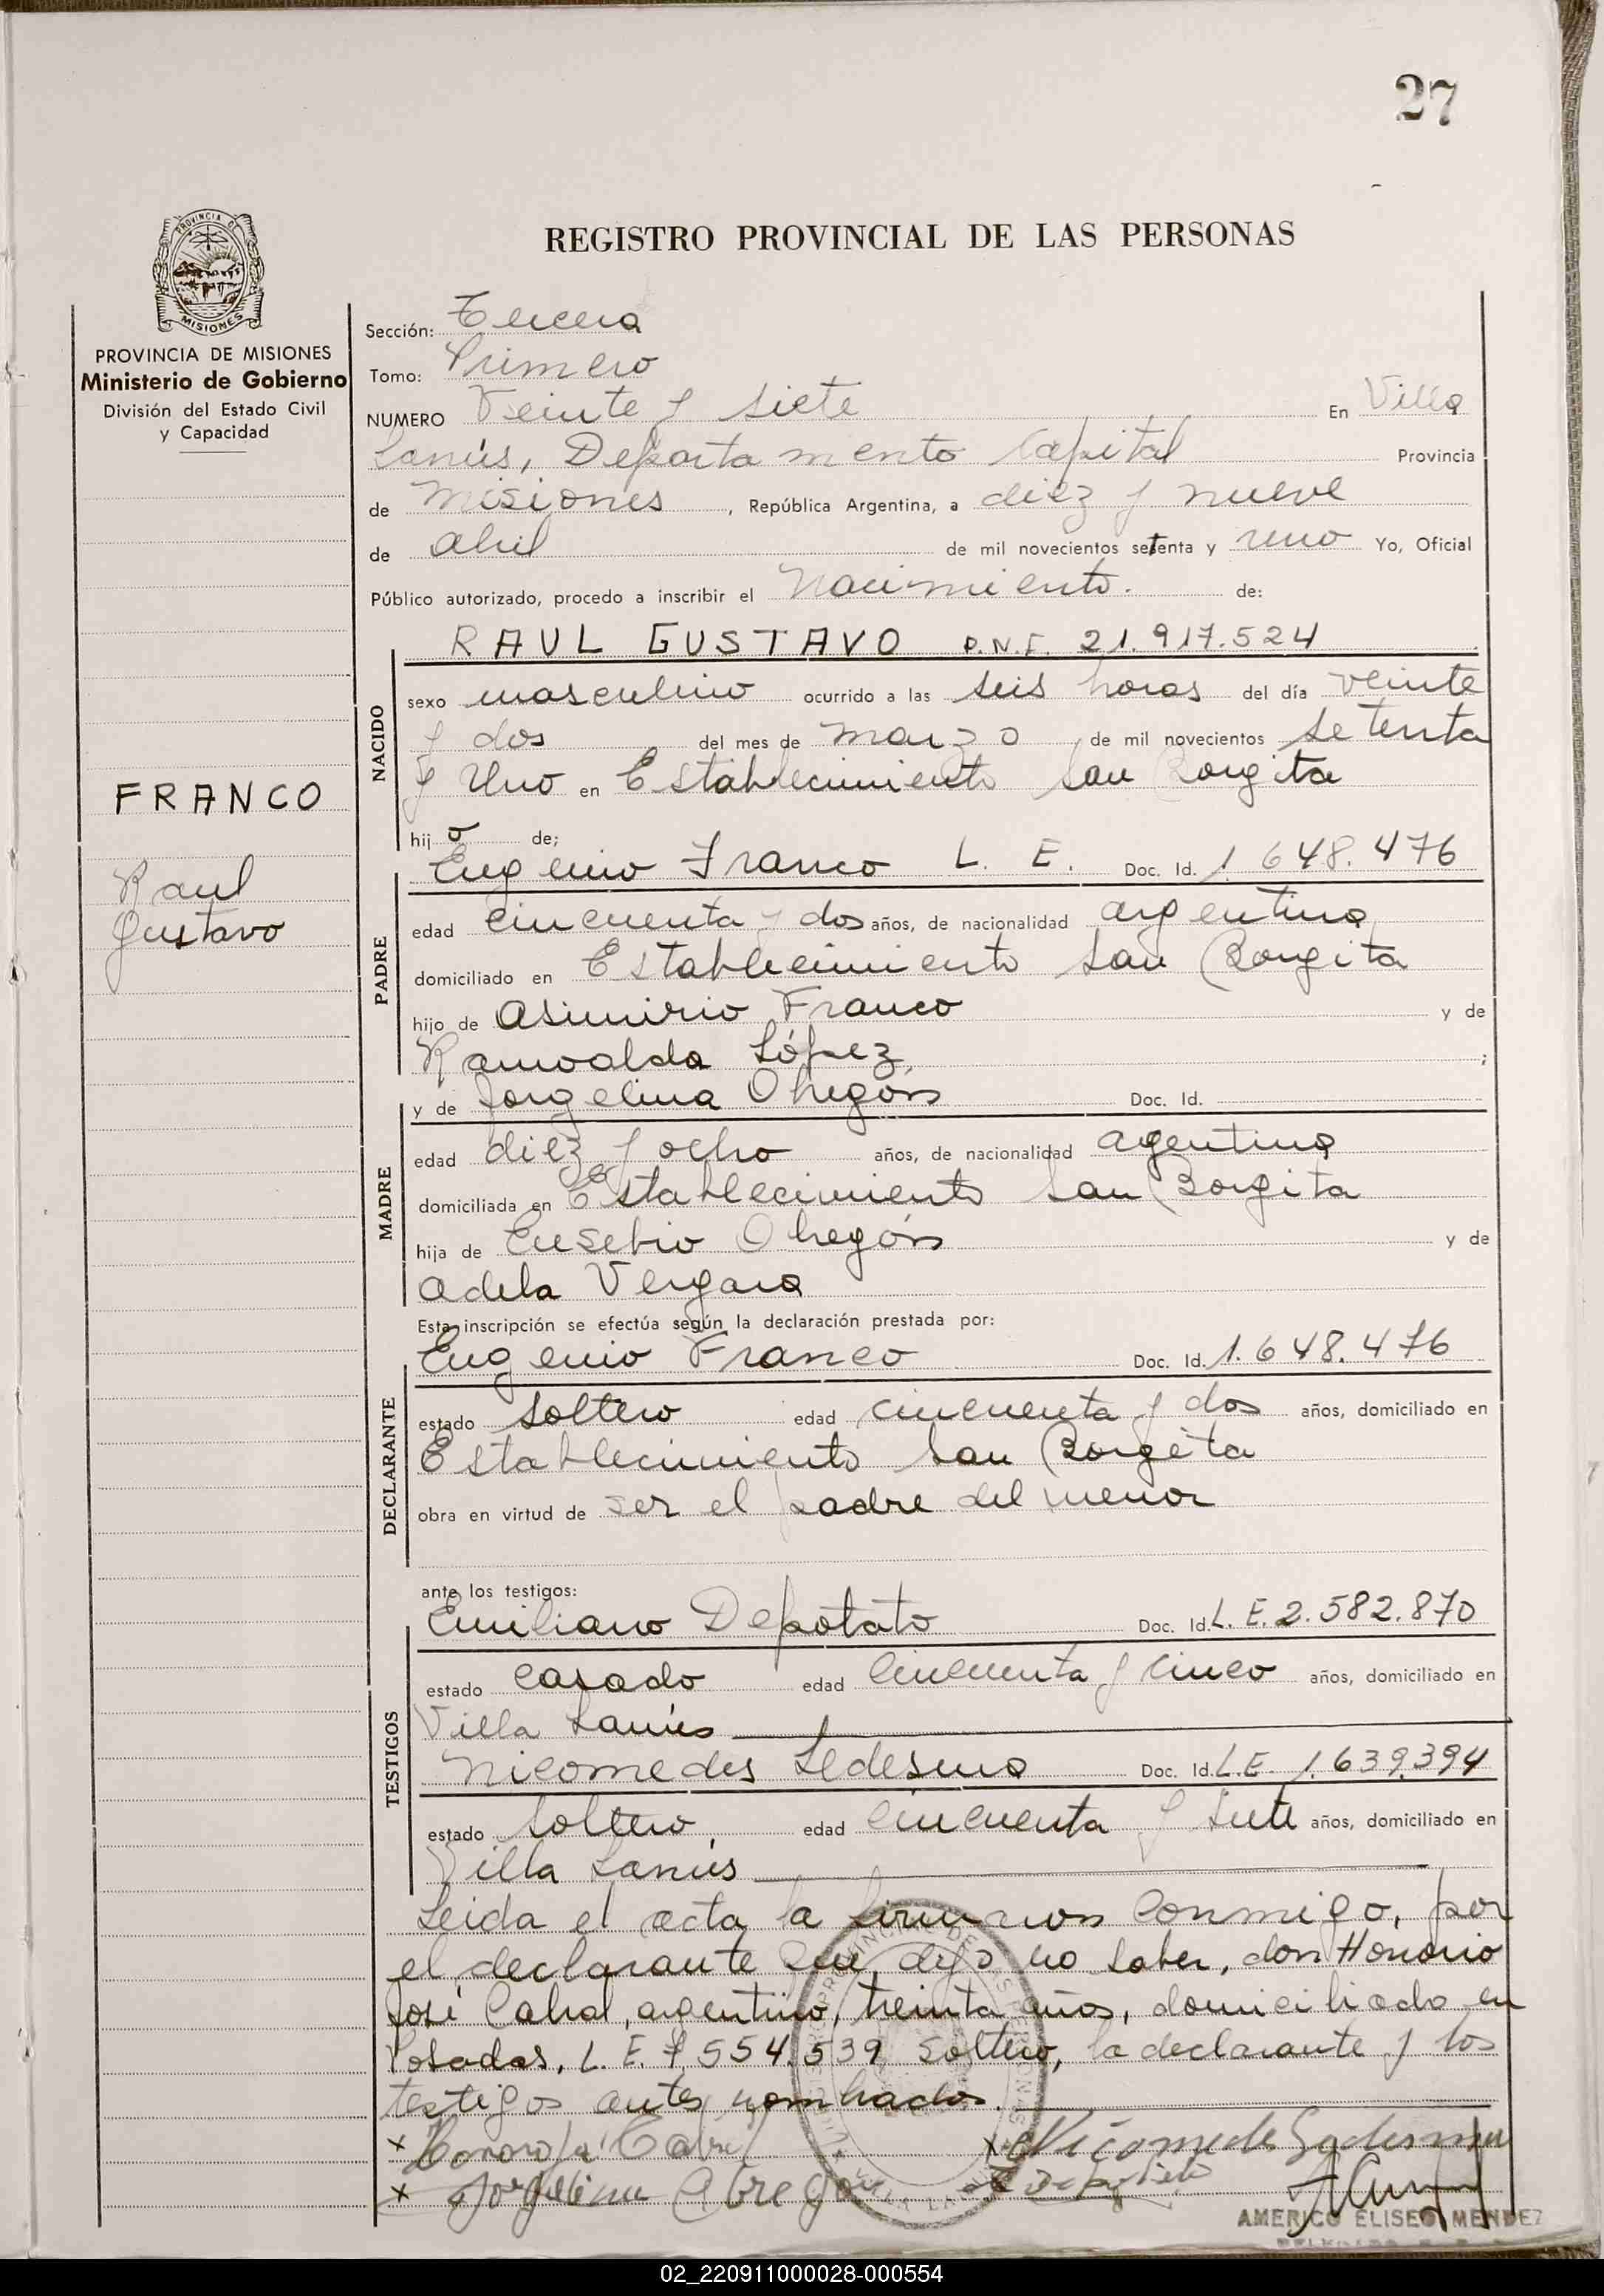 27
PROVINCIA D
MISIONES
REGISTRO PROVINCIAL DE LAS PERSONAS
PROVINCIA DE MISIONES
Ministerio de Gobierno
División del Estado Civil
y Capacidad
FRANCO
Raul
Gustavo
Sección: Tercera
Tomo: Primero
NUMERO Veinte y siete En Villa
Lanús, Departamento Capital Provincia
de Misiones, República Argentina, a diez y nueve
de abril de mil novecientos setenta y uno Yo, Oficial
Público autorizado, procedo a inscribir el Nacimiento. de:
RAUL GUSTAVO D.N.I. 21.917.524
NACIDO
sexo masculino ocurrido a las seis horas del día veinte
y dos del mes de marzo de mil novecientos setenta
y Uno en Establecimiento San Borgita
hijo de;
Eugenio Franco L. E. Doc. Id. 1.648.476
PADRE
edad cincuenta y dos años, de nacionalidad argentina
domiciliado en Establecimiento San Borgita
hijo de Asimirio Franco y de
Ramoalda López ;
y de Jorgelina Obregón Doc. Id.
MADRE
edad diez y ocho años, de nacionalidad agentina
domiciliada en Establecimiento San Borgita
hija de Eusebio Obregón y de
Adela Vergara
Esta inscripción se efectúa según la declaración prestada por:
Eugenio Franco Doc. Id. 1.648.476
DECLARANTE
estado soltero edad cincuenta y dos años, domiciliado en
Establecimiento San Borgita
obra en virtud de ser el padre del menor
ante los testigos:
Emiliano Depotato Doc. Id. L.E. 2.582.870
TESTIGOS
estado casado edad cincuenta y cinco años, domiciliado en
Villa Lanús
Nicomedes Ledesma Doc. Id. L.E. 1.639.394
estado soltero, edad cincuenta y siete años, domiciliado en
Villa Lanús
Leida el acta la firmaron conmigo, por
el declarante que dijo no saber, don Honorio
José Cabral, argentino, treinta años, domiciliado en
Posadas, L. E. 7.554.539 soltero, la declarante y los
testigos antes nombrados.
x Honorio José Cabral x Nicomedes Ledesma
x Jorgelina Obregon
AMERICO ELISEO MENDEZ
02_220911000028-000554